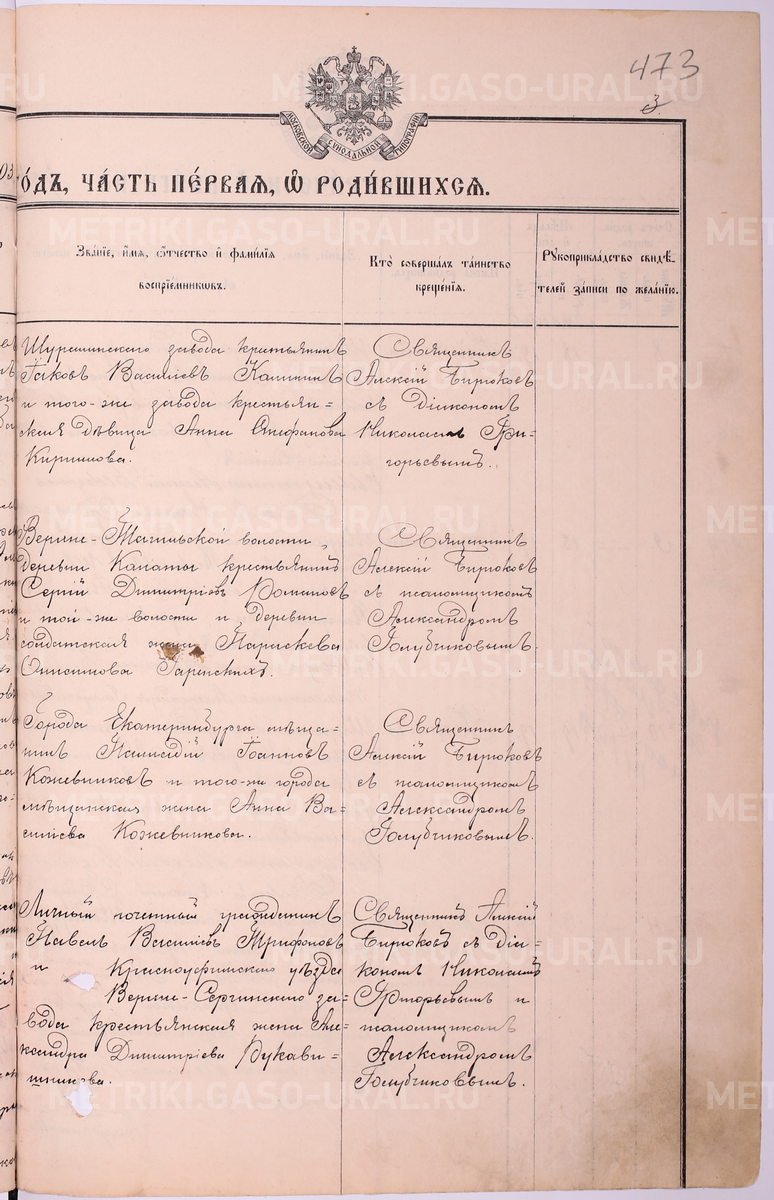 473
3
МОСКОВСКОЙ СѴНОДАЛЬНОЙ ТИПОГРАФІИ
О́ДЪ, ЧА́СТЬ ПЕ́РВАЯ, Ѽ РОДИ́ВШИХСѦ.
Зва́ніе, и́мя, ѻ́тчество и҆ фами́лія
воспріе́мниковъ.
Кто̀ соверша́лъ та́инство
креще́нія.
Рꙋкоприкла́дство свидѣ́-
телей за́писи по жела́нію.
завода крестьянинъ
Іаковъ Василіевъ Калининъ
и того-же завода крестьян-
ская дѣвица Анна Стефанова
Кириллова.
Священникъ
Алексій Бирюковъ
съ діакономъ
Николаемъ Гри-
горьевымъ.
Верхне-Тагильской волости,
деревни крестьянинъ
Сергій Димитріевъ Романовъ
и той-же волости и деревни
солдатская жена Параскева
Священникъ
Алексій Бирюковъ
съ псаломщикомъ
Александромъ
Голубчиковымъ.
Города Екатеринбурга мѣща-
нинъ Геннадій Іоанновъ
Кожевниковъ и того-же города
мѣщанская жена Анна Ва-
силіева Кожевникова.
Священникъ
Алексій Бирюковъ
съ псаломщикомъ
Александромъ
Голубчиковымъ.
Личный почетный гражданинъ
Павелъ Василіевъ Трифоновъ
и Красноуфимскаго уѣзда
Верхне-Сергинскаго за-
вода крестьянская жена Але-
ксандра Димитріева Рукави-
шникова.
Священникъ Алексій
Бирюковъ съ діа-
кономъ Николаемъ
Григорьевымъ и
псаломщикомъ
Александромъ
Голубчиковымъ.
METRIKI.GASO-URAL.RU